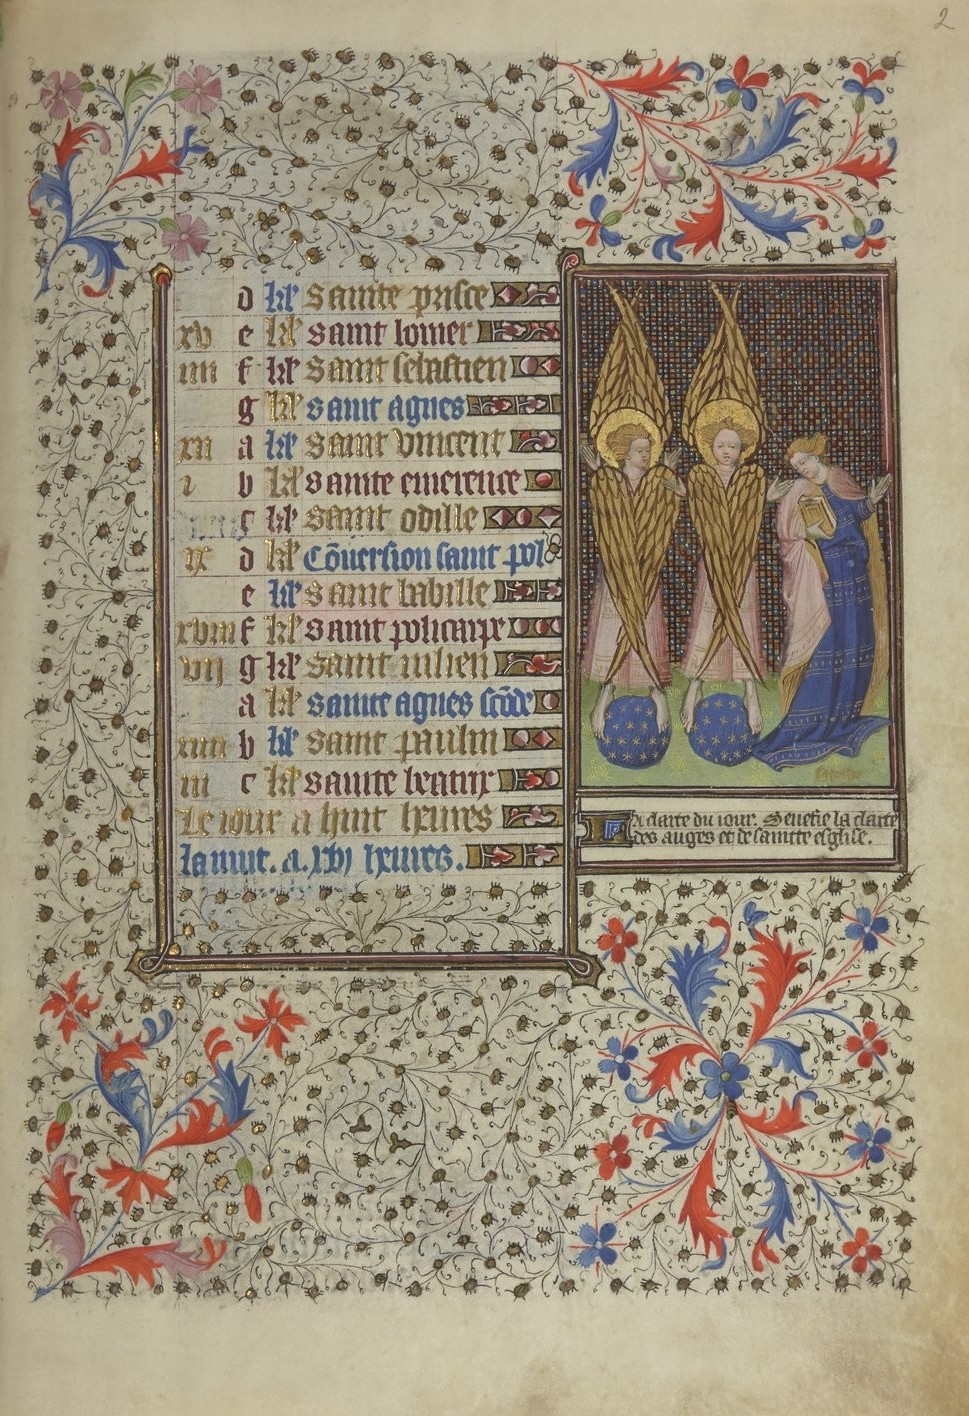 2
d kl' Sainte prisce
xv e kl' saint lomer
iiii f kl' Saint sebastien
g kl' saint agnes
xii a kl' Saint vincent
i b kl' sainte emerence
c kl' Saint odille
ix d kl' Cōuersion saint pol
e kl' Saint babille
xvii f kl' saint policarpe
vii g kl' Saint iulien
a kl' sainte agnes scōde
xiiii b kl' Saint paulin
iii c kl' sainte beatrix
Le iour a huit heures
La nuit. a. xvi heures.
La clarte du iour. Senefie la clarte
des anges et de saincte esglise.